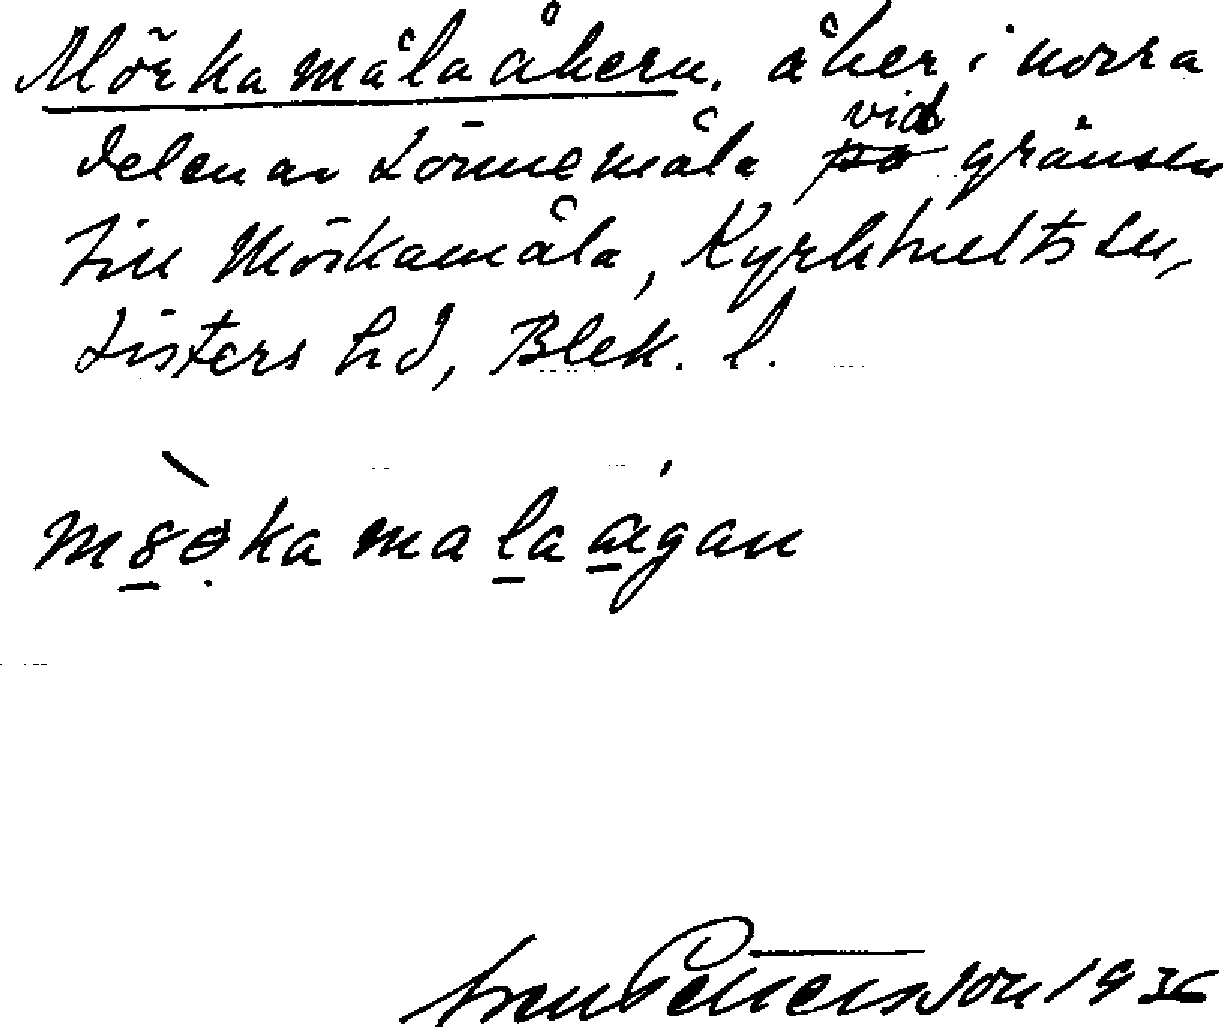 Mörkamålaåkern, åker i norra
delen av Lönnemåla vid gränsen
till Mörkamåla, Kyrkhults sn,
Listers hd, Blek. l.
Pettersson 1936